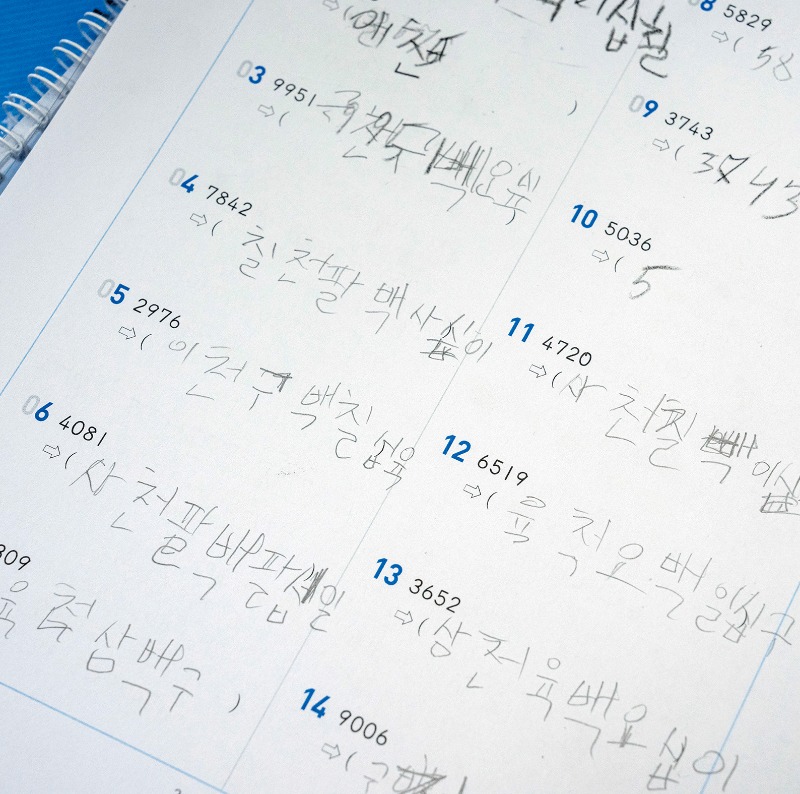 예 천
03 9951
⇨( 구천구백오십
04 7842
⇨( 칠천팔백사십이
05 2976
⇨( 이천구백칠십육
06 4081
⇨( 사천팔백팔십일
309
육천삼백구 )
8 5829
⇨( 58
09 3743
⇨( 3743
10 5036
⇨( 5
11 4720
⇨( 사천칠백이십
12 6519
⇨( 육척오백일십구
13 3652
⇨( 삼천육백오십이
14 9006
⇨( 구